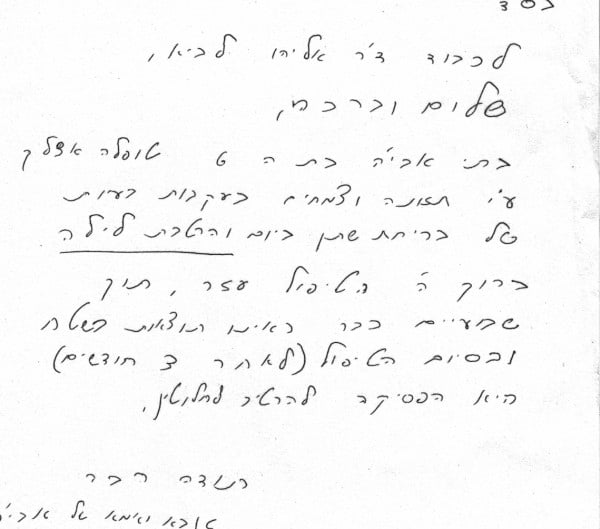 בס"ד
לכבוד ד"ר אליהו לביא,
שלום וברכה,
בתי אביה בת ה 9 טופלה אצלך
ע"י תזונה וצמחים בעקבות בעיות
של בריחת שתן ביום והרטבת לילה
ברוך ה' הטיפול עזר, תוך
שבועיים כבר ראינו תוצאות בשטח
ובסיום הטיפול (לאחר 3 חודשים)
היא הפסיקה להרטיב לחלוטין.
תודה רבה
אבא ואימא של